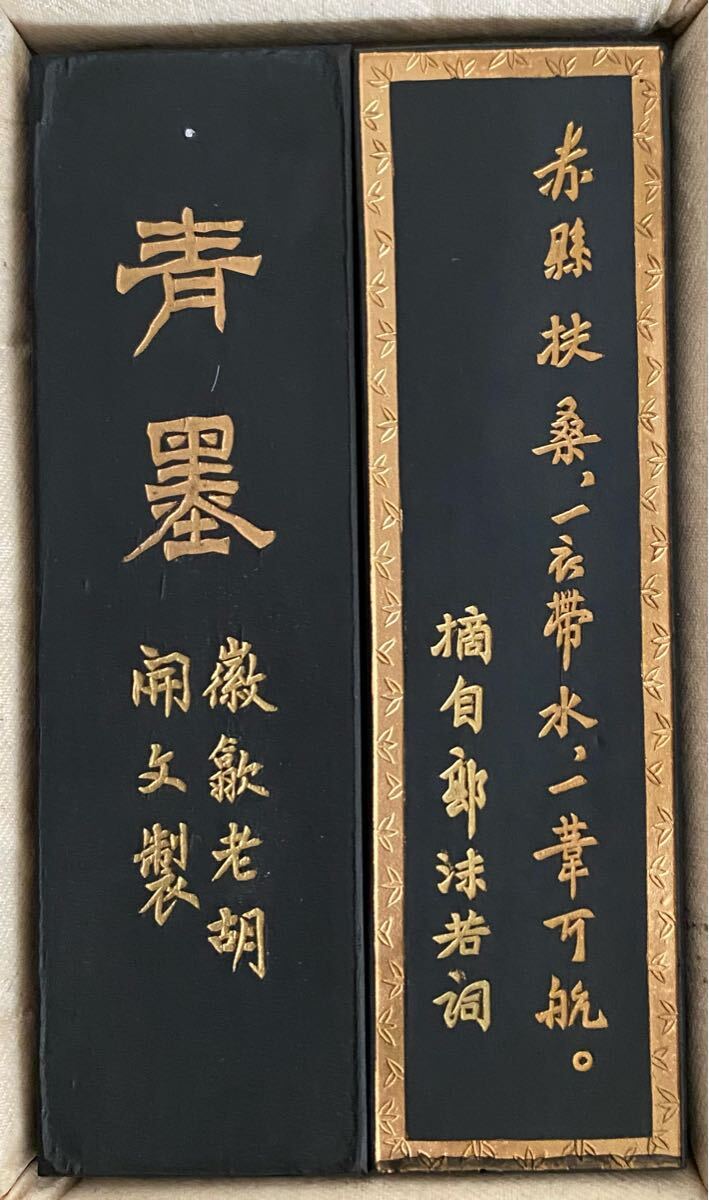 赤縣扶桑，一衣帶水，一葦可航。
摘自郭沫若词
青墨
徽歙老胡
開文製